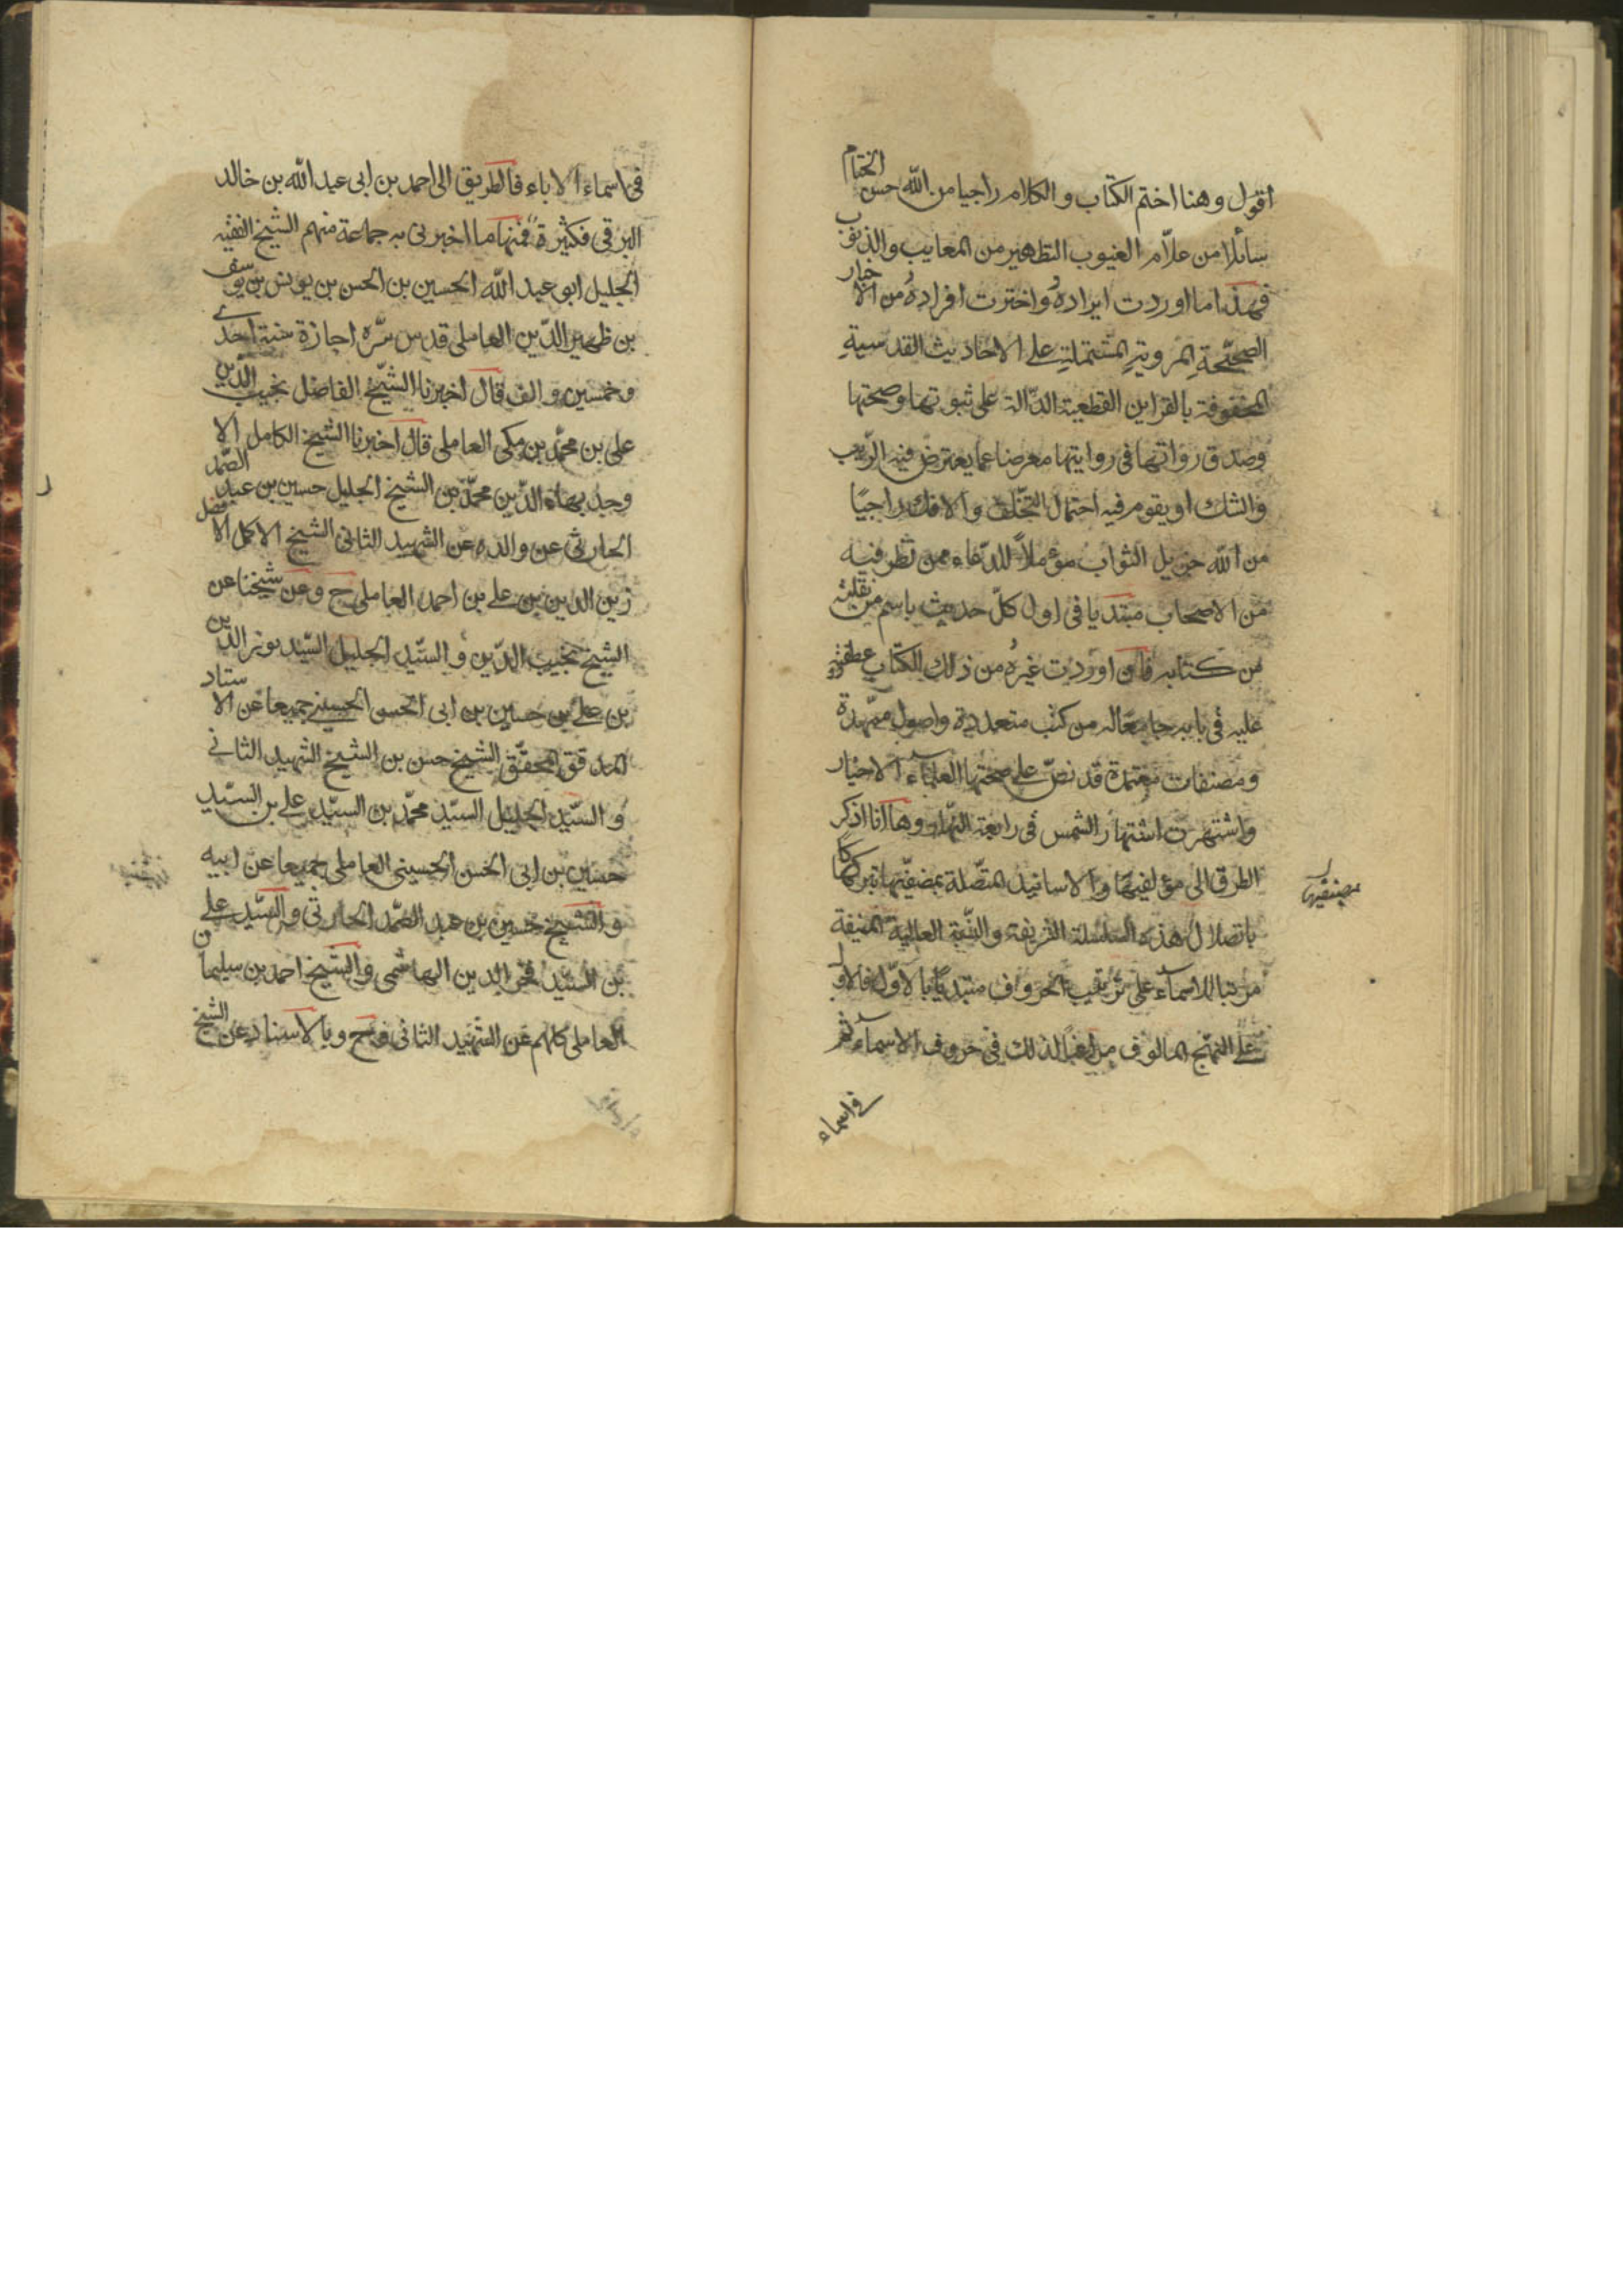 اقول وهنا اختم الكتاب والكلام راجيا من الله حسن الختام
سائلا من علّام الغيوب التطهير من المعايب والذنوب
فهذا ما اوردت ايراده واخترت افراده من الاخبار
الصحيحة المروية المشتملة على الاحاديث القدسية
المحفوفة بالقراين القطعية الدّالة على ثبوتها وصحتها
وصدق رواتها فى روايتها معرضا عما يعترض فيه الريب
والشك او يقوم فيه احتمال التخلف والافك راجيًا
من الله جزيل الثواب مؤملاً للدّعاء ممن نظر فيه
من الاصحاب مبتديا فى اول كلّ حديث باسم من نقلته
من كتابه فان اوردت غيره من ذلك الكتاب عطفته
عليه فى بابه جامعا له من كتب متعددة واصول ممهّدة
ومصنفات معتمدة قد نصّ على صحتها العلماء الاخيار
واشتهرت اشتهار الشمس فى رابعة النهار وها انا اذكر
الطرق الى مؤلفيها والاسانيد المتصّلة بمصنفيها تبركا
بمصنفيها
باتصال هذه السلسلة الشريفة والنسبة العالية المنيفة
مرتبا للاسماء على ترتيب الحروف مبتديًا بالاوّل فالاول
على النهج المالوف مراعيًا لذلك فى حروف الاسماء ثم
فى اسماء
فى اسماء الاباء فالطريق الى احمد بن ابى عبد الله بن خالد
البرقى فكثيرة فمنها ما اخبرنى به جماعة منهم الشيخ الفقيه
الجليل ابو عبد الله الحسين بن الحسن بن يونس بن يوسف
بن ظهير الدّين العاملى قدس سّره اجازة سنة احدى
وخمسين والف قال اخبرنا الشيّخ الفاضل نجيب الدّين
على بن محمّد بن مكى العاملى قال اخبرنا الشيخ الكامل الا
وحد بهاء الدّين محمّد بن الشيخ الجليل حسين بن عبد الصّمد
الحارثى عن والده عن الشهيد الثانى الشيخ الاكمل الافضل
زين الدين بن على بن احمد العاملى ح وعن شيخنا عن
الشيخ نجيب الدّين والسّيد الجليل السّيد نور الدّين
بن على بن حسين بن ابى الحسن الحسينى جميعا عن الاستاد
المدقق المحقّق الشيخ حسن بن الشيخ الشهيد الثانى
والسّيد الجليل السيّد محمّد بن السيّد على بن السيّد
حسين بن ابى الحسن الحسينى العاملى جميعا عن ابيه
والشيخ حسين بن عبد الصّمد الحارثى والسّيد على
بن السّيد فخر الدين الهاشمى والشيخ احمد بن سليمان
العاملى كلهم عن الشهيد الثانى ح وبالاسناد عن الشيخ